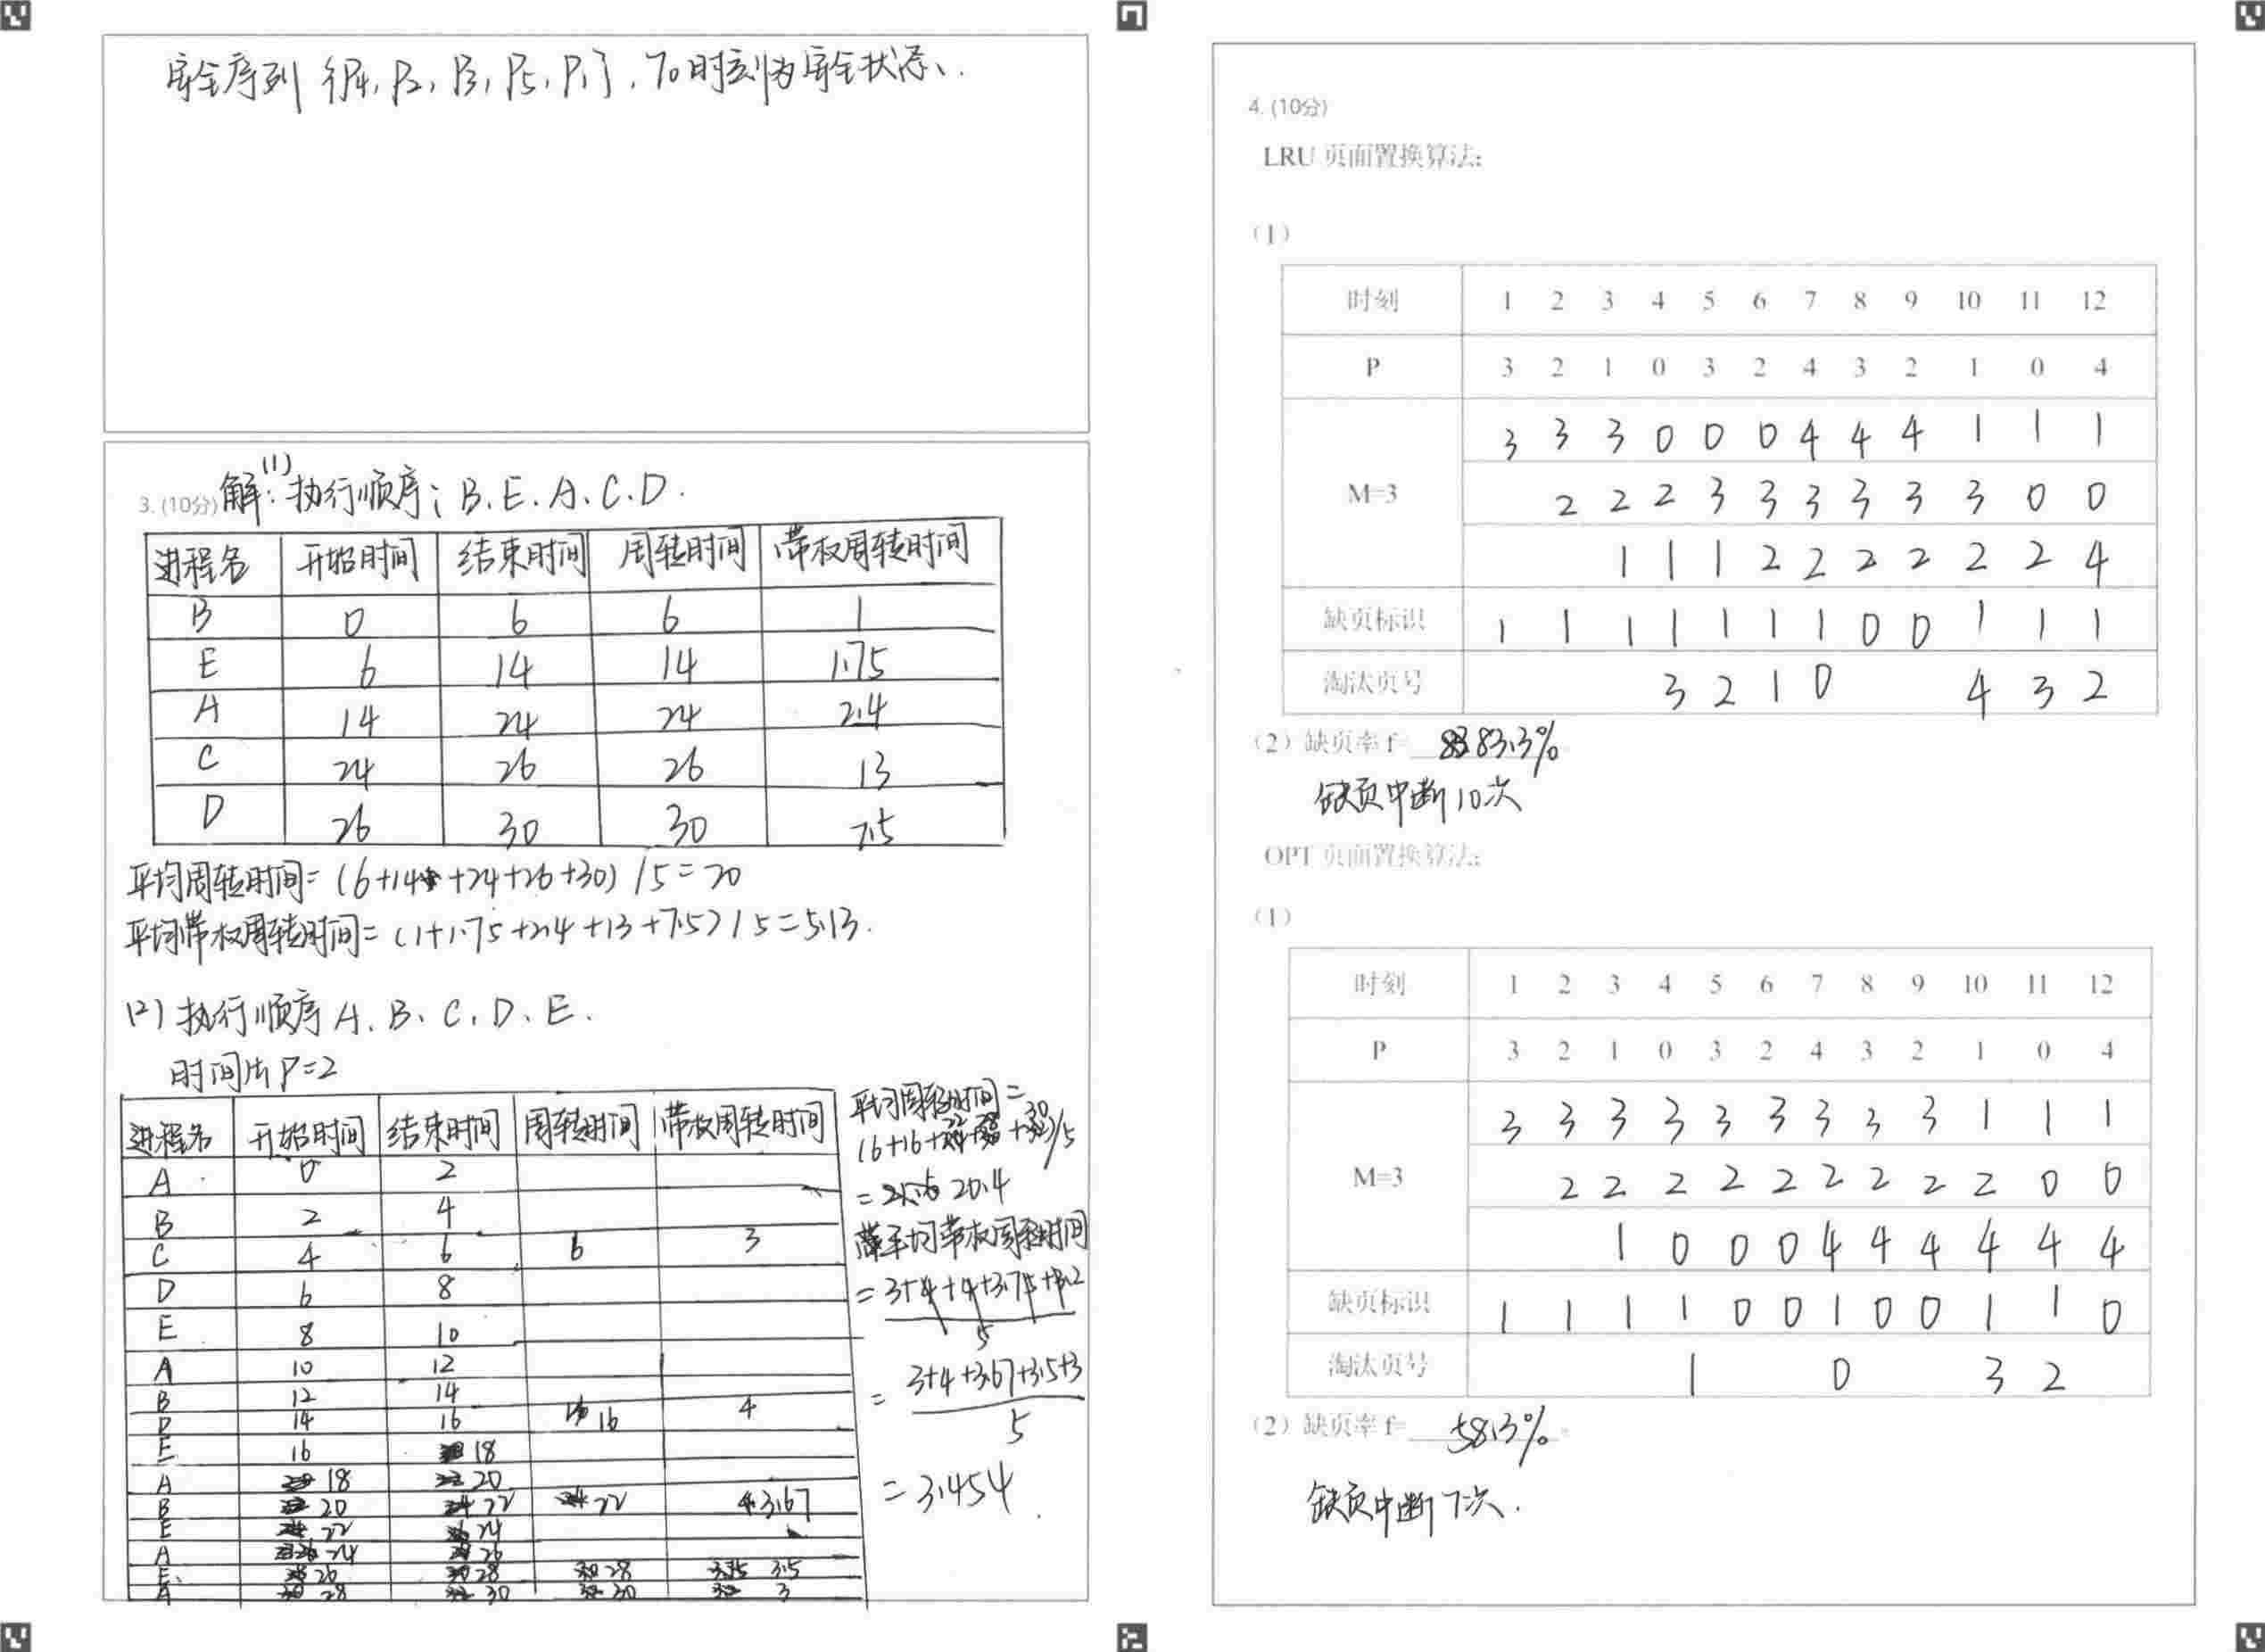 安全序列 {P4, P2, P3, P5, P1}, T0时刻为安全状态.
3. (10分) 解: (1) 执行顺序: B. E. A. C. D.
进程名 开始时间 结束时间 周转时间 带权周转时间
B 0 6 6 1
E 6 14 14 1.75
A 14 24 24 2.4
C 24 26 26 13
D 26 30 30 7.5
平均周转时间= (6+14+24+26+30) /5=20
平均带权周转时间= (1+1.75+2.4+13+7.5) / 5=5.13.
(2) 执行顺序 A. B. C. D. E.
时间片P=2
进程名 开始时间 结束时间 周转时间 带权周转时间
A 0 2
B 2 4
C 4 6 6 3
D 6 8
E 8 10
A 10 12
B 12 14
D 14 16 16 4
E 16 18
A 18 20
B 20 22 22 3.67
E 22 24
A 24 26
E 26 28 28 3.5
A 28 30 30 3
平均周转时间=
(6+16+22+28+30)/5
= 20.4
平均带权周转时间
= 3+4+4+3.75+3.2
5
= 3+4+3.67+3.5+3
5
= 3.454
4. (10分)
LRU 页面置换算法:
(1)
时刻 1 2 3 4 5 6 7 8 9 10 11 12
P 3 2 1 0 3 2 4 3 2 1 0 4
3 3 3 0 0 0 4 4 4 1 1 1
M=3 2 2 2 3 3 3 3 3 3 0 0
1 1 1 2 2 2 2 2 2 4
缺页标识 1 1 1 1 1 1 1 0 0 1 1 1
淘汰页号 3 2 1 0 4 3 2
(2) 缺页率 f= 83.3%
缺页中断10次
OPT 页面置换算法:
(1)
时刻 1 2 3 4 5 6 7 8 9 10 11 12
P 3 2 1 0 3 2 4 3 2 1 0 4
3 3 3 3 3 3 3 3 3 1 1 1
M=3 2 2 2 2 2 2 2 2 2 0 0
1 0 0 0 4 4 4 4 4 4
缺页标识 1 1 1 1 0 0 1 0 0 1 1 0
淘汰页号 1 0 3 2
(2) 缺页率 f= 58.3%。
缺页中断7次.